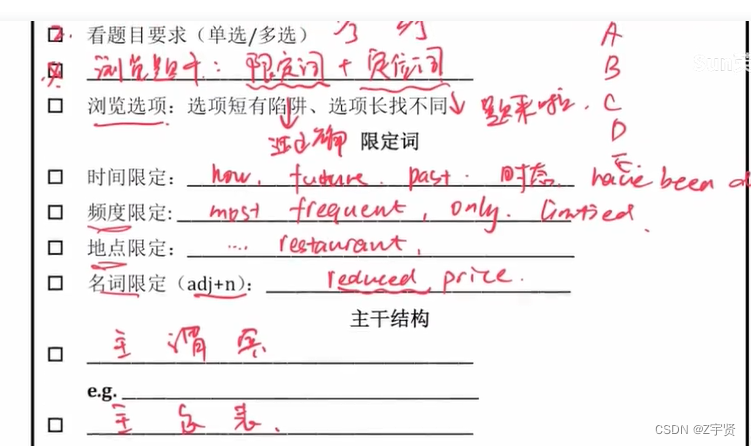 看题目要求（单选/多选）
A
浏览题干：限定词 + 定位词
B
浏览选项：选项短有陷阱、选项长找不同 C
D
限定词
时间限定： how, future. past. 时态. have been
频度限定: most frequent, only. limited.
地点限定： .... restaurant,
名词限定（adj+n）： reduced price.
主干结构
主 谓 宾
e.g.
主 系 表.
CSDN @Z宇贤